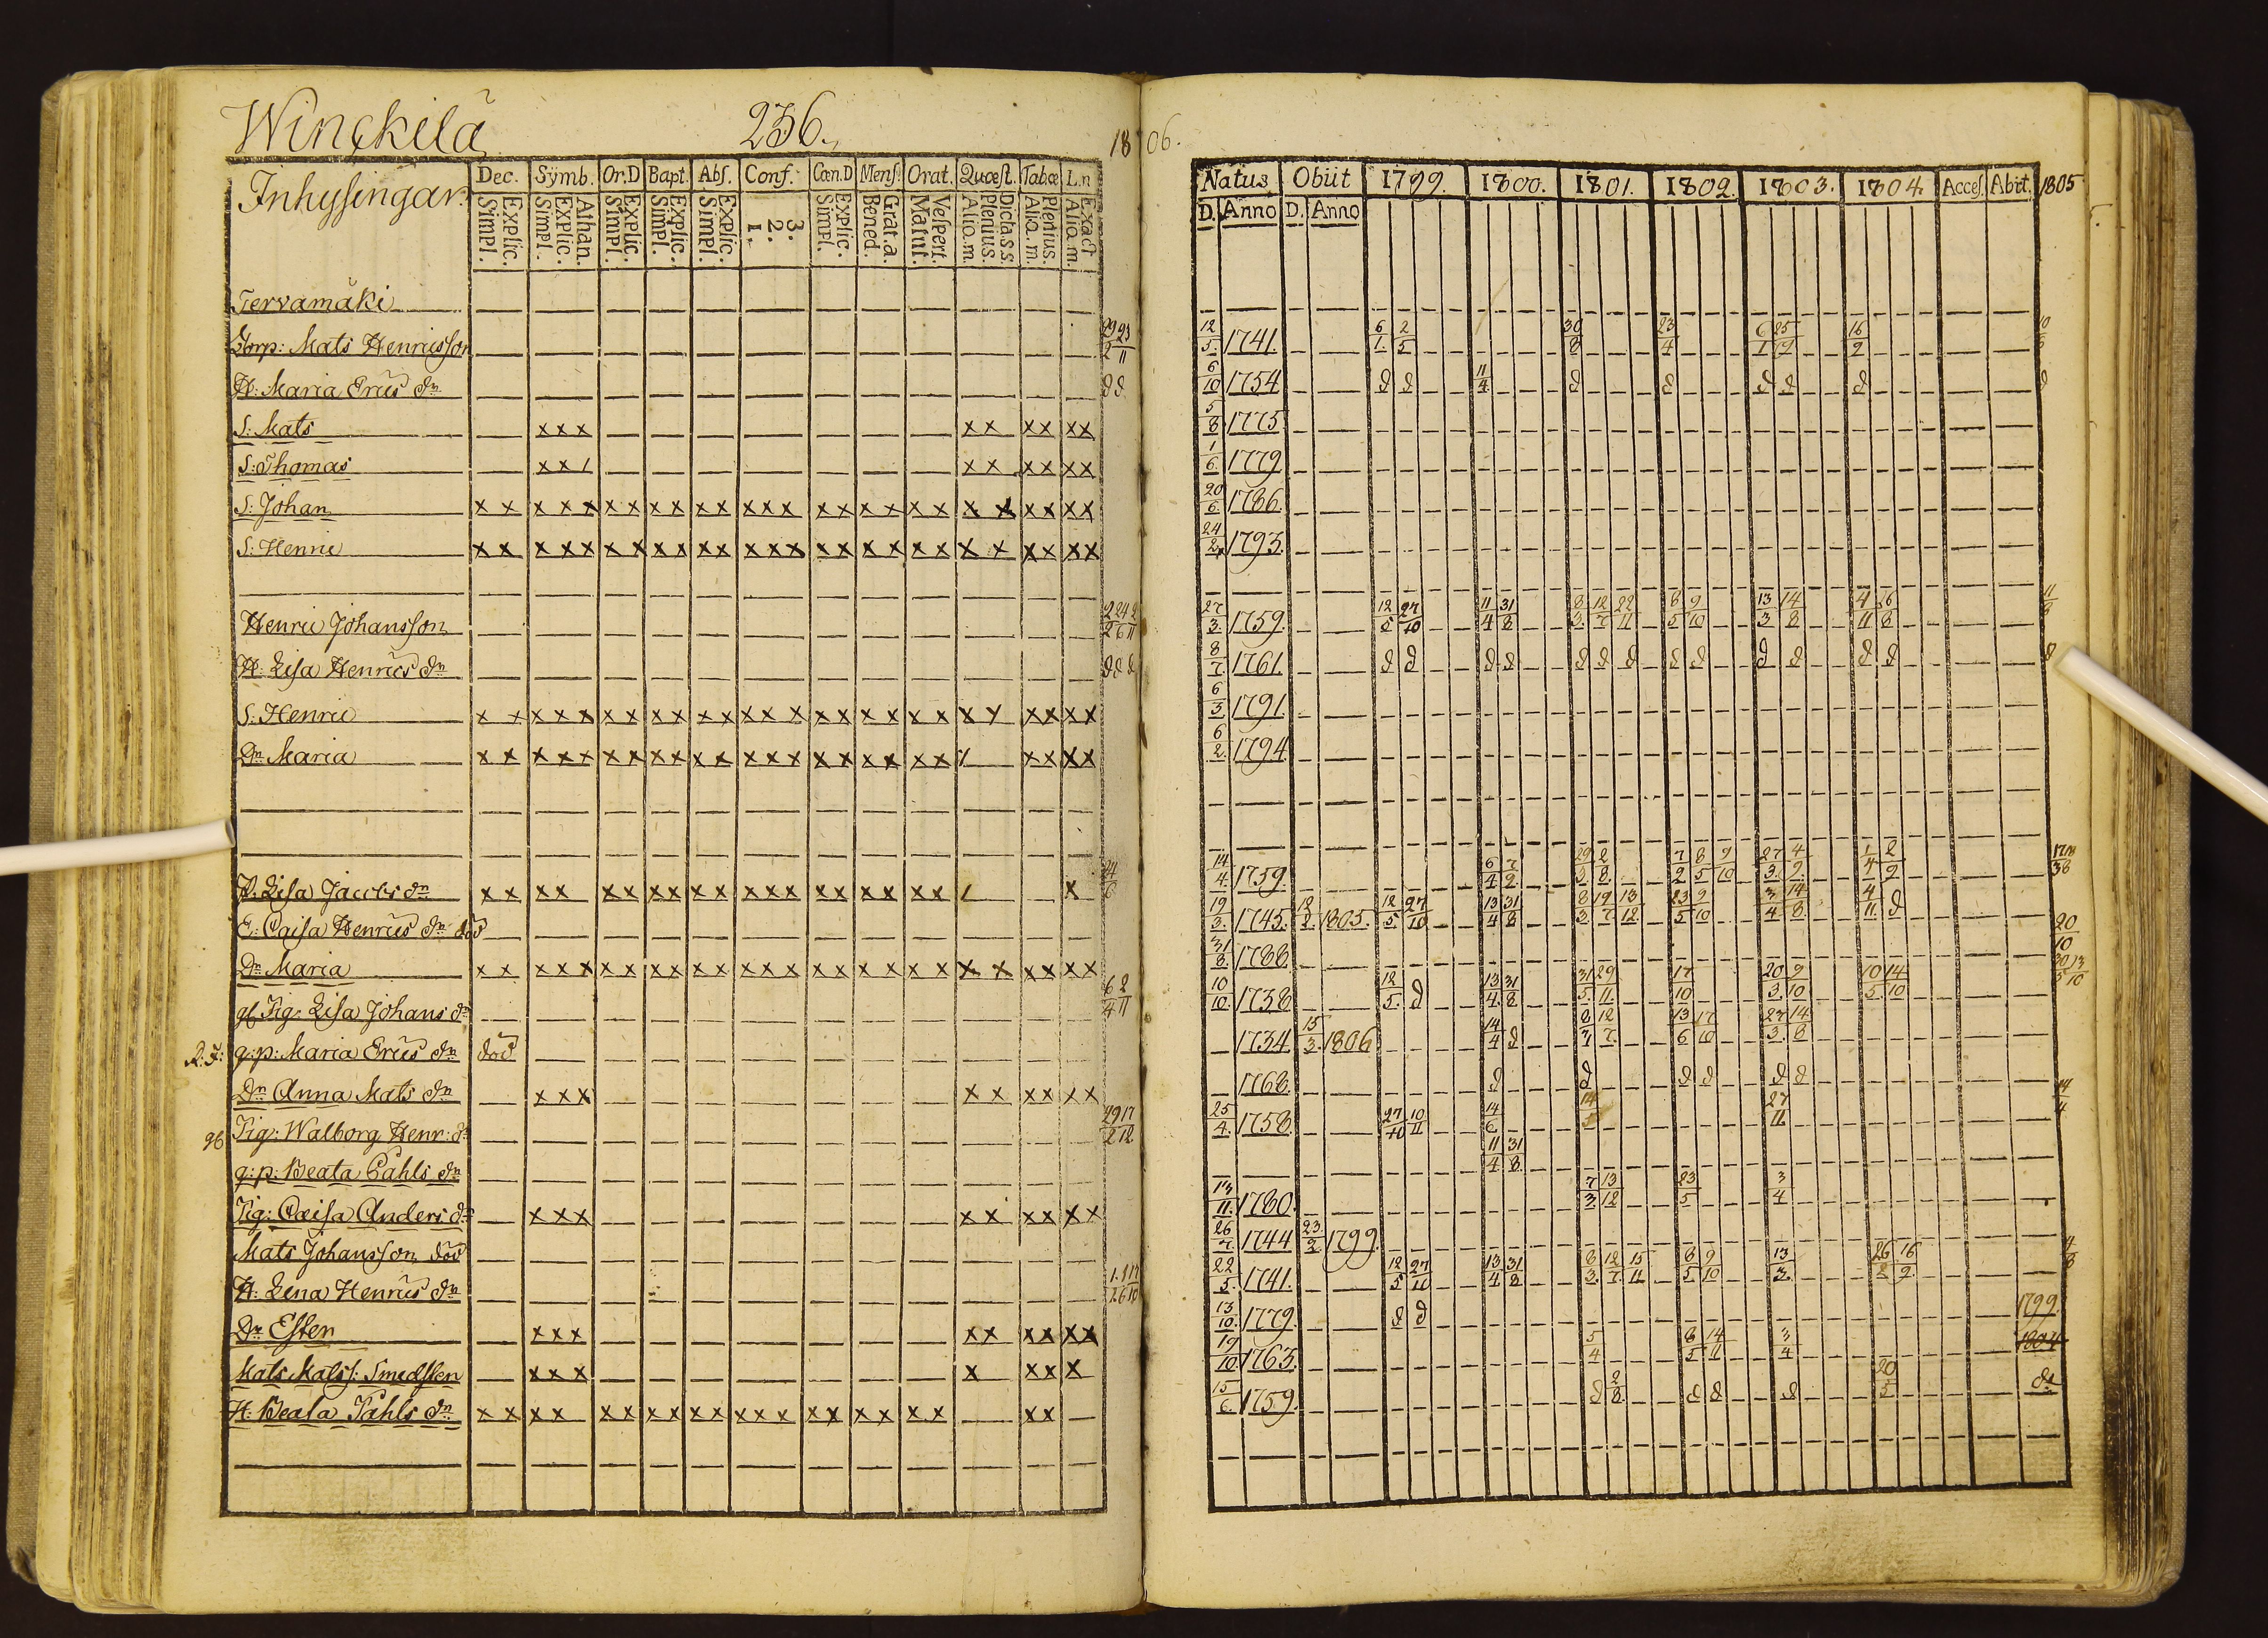 Winckilä 236.
1806.
Inhysingar. Dec. Symb. Or.D Bapt. Abs. Conf. Cæn.D Mens. Orat. Quæst. Tab.æ L.n
Explic. Simpl. Athan. Explic. Simpl. Explic. Simpl. Explic. Simpl. Explic. Simpl. 3. 2. 1. Explic. Simpl. Grat.a. Bened. Vespert. Matut. Dicta.s.s. Plenius. Aliq.m. Plenius. Aliq.m. Exact Aliq.m.
Natus Obiit 1799. 1800. 1801. 1802. 1803. 1804. Acces. Abit. 1805
D. Anno D. Anno
Tervamäki
Torp: Mats Henricsson 12/5 1741. 6/1 2/5 30/8 23/4 16/9
H: Maria Erics dr 6/10 1754 d d 11/4 d d d d d d
S: Mats x x x x x x x x x 5/8 1775
S: Thomas x x / x x x x x x 1/6 1779
S: Johan x x x x x x x x x x x x x x x x x x x x x x x x x x 20/6 1786.
S: Henric x x x x x x x x x x x x x x x x x x x x x x x x x x 1793.
Henric Johansson 27/3 1759. 12/5 27/10 11/4 31/8 8/3 12/7 22/11 8/5 9/10 13/3 14/8 11/8
H: Lisa Henrics dr d d d 8/7 1761. d d d d d d d d d d d d d d
S: Henric x x x x x x x x x x x x x x x x x x x x x x x x x x 6/3 1791.
Dr Maria x x x x x x x x x x x x x x x x x x x x / x x x x 6/2 1794
Lisa Jacobs dr x x x x x x x x x x x x x x x x x x x / x 14/4 1759. 6/4 7/9 29/3 2/8 7/2 8/5 9/10 27/3 4/9 1/4 2/9
E: Caisa Henrics dr död 19/3 1745. 12/2 1805. 12/5 27/10 13/4 31/8 8/3 19/7 13/12 23/5 9/10 3/4 14/8 4/11 d
Dr Maria x x x x x x x x x x x x x x x x x x x x x x x x x x 31/8 1788. 20/10
Pig: Lisa Johans dr 6/4 2/11 10/10 1738 12/5 d 13/4 31/8 31/5 29/11 17/10 20/3 9/10 10/5 14/10
q:p: Maria Erics dr död 1734 15/3 1806 14/4 d 12/7 13/6 17/10 27/3 14/8
Dr Anna Mats dr x x x x x x x x x 1768. d d d d d d
Pig: Walborg Henr: dr 29/2 17/12 25/4 1758. 27/10 10/11 14/6 27/11 14/4
q:p: Beata Pahls dr 11/4 31/8
Pig: Caisa Anders dr x x x x x x x x x 1780. 7/3 13/12 23/5 3/4
Mats Johansson död 26/7 1744 23/2 1799.
H: Lena Henrics dr 22/5 1741. 12/5 13/4 31/8 8/3 12/7 15/11 8/5 9/10 13/3 16/9
Dr Ester x x x x x x x x x 13/10 1779. d d 1799.
Mats Matss: Smedsten x x x x x x x 19/10 1763. 5/4 8/5 14/11 3/4 1804
H: Beata Pahls dr x x x x x x x x x x x x x x x x x x x x x 15/6 1759. d 2/8 d d d 20/5 do